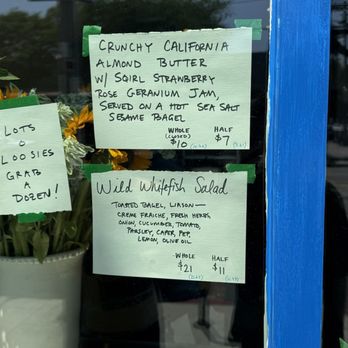 CRUNCHY CALIFORNIA
ALMOND BUTTER
W/ SQIRL STRAWBERRY
ROSE GERANIUM JAM,
SERVED ON A HOT SEA SALT
SESAME BAGEL
WHOLE HALF
(CLOSED)
$10 $7
LOTS
O
LOOSIES
GRAB
A
DOZEN!
Wild Whitefish Salad
TOASTED BAGEL,
CREME FRAICHE, FRESH HERBS
ONION, CUCUMBER, TOMATO,
PARSLEY, CAPER, PEP,
LEMON, OLIVE OIL
WHOLE HALF
$21 $11